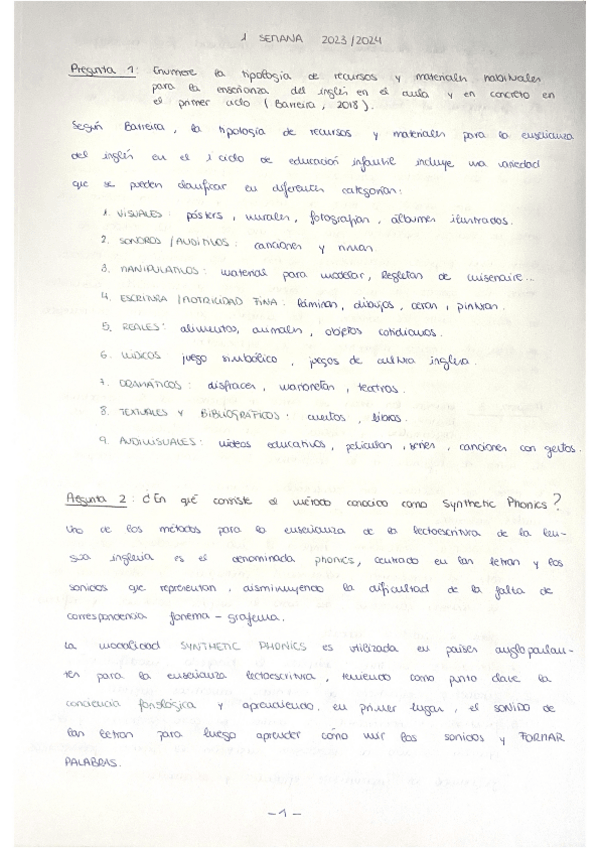 1 SEMANA 2023/2024
Pregunta 1: Enumere la tipología de recursos y materiales habituales
para la enseñanza del inglés en el aula y en concreto en
el primer ciclo (Barreira, 2018).
Según Barreira, la tipología de recursos y materiales para la enseñanza
del inglés en el 1 ciclo de educación infantil incluye una variedad
que se pueden clasificar en diferentes categorías:
1. VISUALES: pósters, murales, fotografías, álbumes ilustrados.
2. SONOROS / AUDITIVOS: canciones y rimas
3. MANIPULATIVOS: material para modelar, Regletas de cuisenaire...
4. ESCRITURA / MOTRICIDAD FINA: láminas, dibujos, ceras, pinturas.
5. REALES: alimentos, animales, objetos cotidianos.
6. LÚDICOS juego simbólico, juegos de cultura inglesa.
7. DRAMÁTICOS: disfraces, marionetas, teatros.
8. TEXTUALES Y BIBLIOGRÁFICOS: cuentos, libros.
9. AUDIOVISUALES: vídeos educativos, películas, series, canciones con gestos.
Pregunta 2: ¿En qué consiste el método conocido como Synthetic Phonics?
Uno de los métodos para la enseñanza de la lectoescritura de la len-
gua inglesa es el denominada phonics, centrado en las letras y los
sonidos que representan, disminuyendo la dificultad de la falta de
correspondencia fonema - grafema.
La modalidad SYNTHETIC PHONICS es utilizada en países angloparlan-
tes para la enseñanza lectoescritura, teniendo como punto clave la
conciencia fonológica y aprendiendo, en primer lugar, el SONIDO de
las letras para luego aprender cómo unir los sonidos y FORMAR
PALABRAS.
-1-